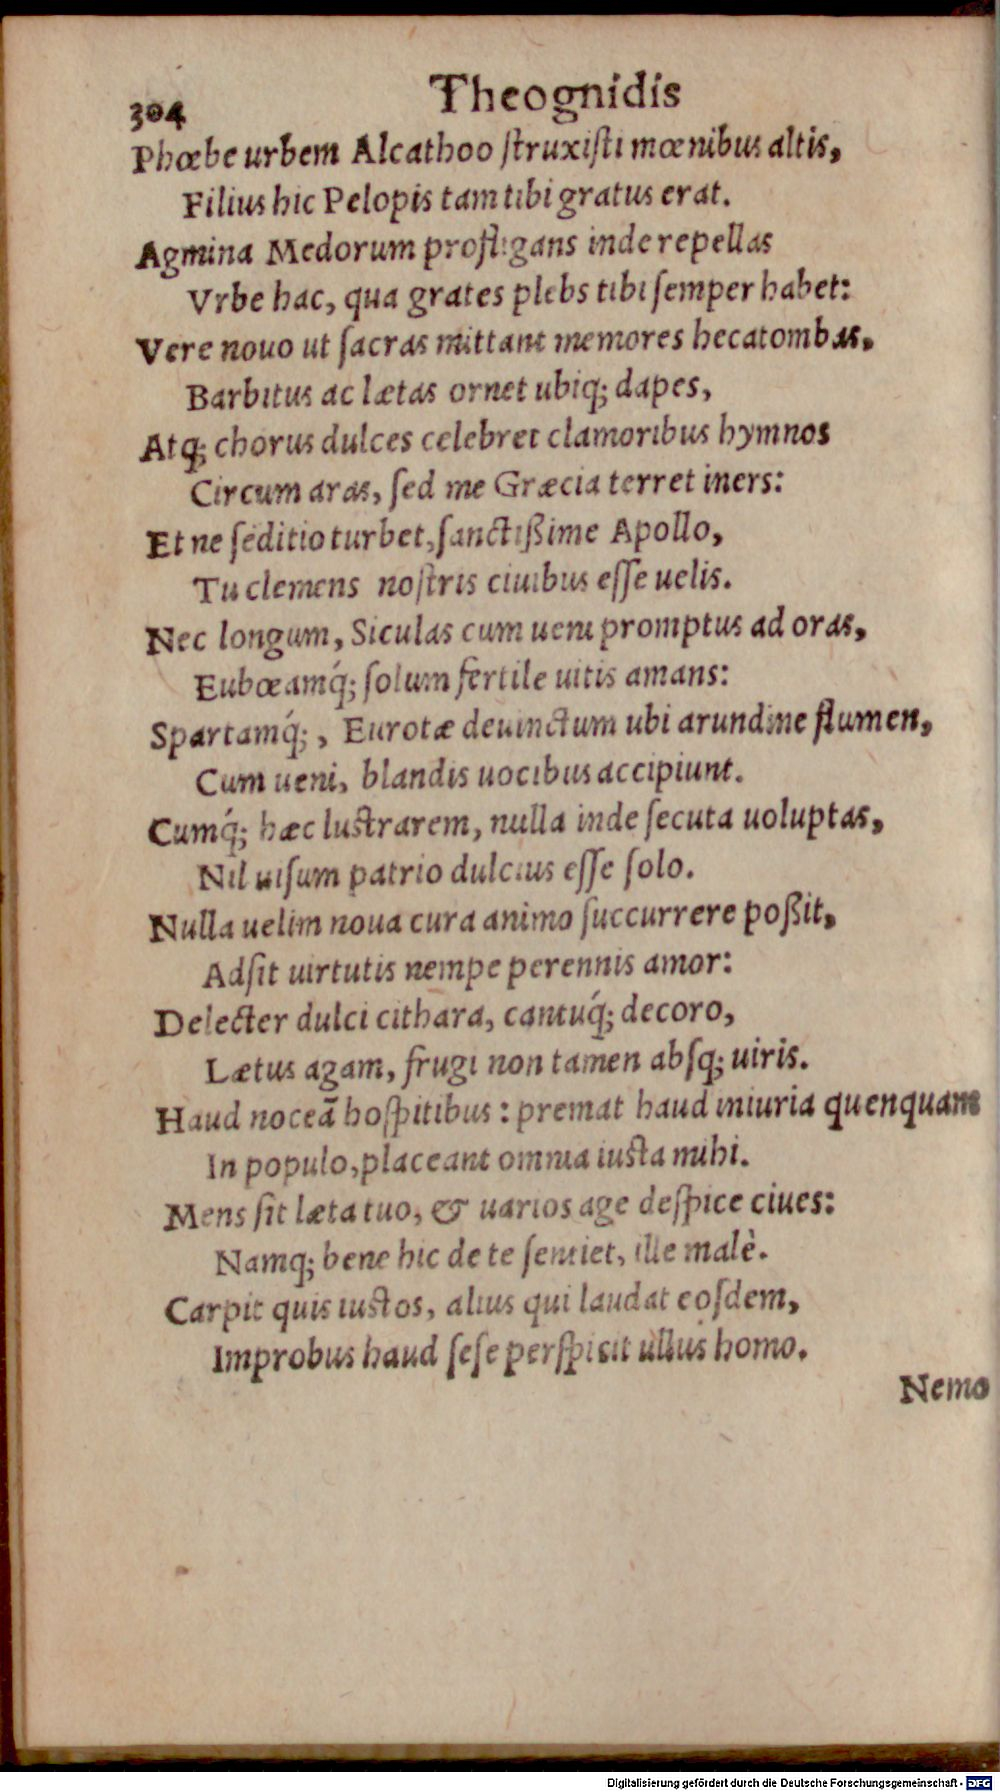 304 Theognidis
Phœbe urbem Alcathoo ſtruxiſti mœnibus altis,
Filius hic Pelopis tam tibi gratus erat.
Agmina Medorum profligans inde repellas
Vrbe hac, qua grates plebs tibi ſemper habet:
Vere nouo ut ſacras mittant memores hecatombas,
Barbitus ac lætas ornet ubiq; dapes,
Atq; chorus dulces celebret clamoribus hymnos
Circum aras, ſed me Græcia terret iners:
Et ne ſeditio turbet, ſanctißime Apollo,
Tu clemens noſtris ciuibus eſſe uelis.
Nec longum, Siculas cum ueni promptus ad oras,
Eubœamq́; ſolum fertile uitis amans:
Spartamq́; , Eurotæ deuinctum ubi arundine flumen,
Cum ueni, blandis uocibus accipiunt.
Cumq́; hæc luſtrarem, nulla inde ſecuta uoluptas,
Nil uiſum patrio dulcius eſſe ſolo.
Nulla uelim noua cura animo ſuccurrere poßit,
Adſit uirtutis nempe perennis amor:
Delecter dulci cithara, cantuq́; decoro,
Lætus agam, frugi non tamen abſq; uiris.
Haud noceã hoſpitibus: premat haud iniuria quenquam
In populo, placeant omnia iuſta mihi.
Mens ſit læta tuo, & uarios age deſpice ciues:
Namq; bene hic de te ſentiet, ille malè.
Carpit quis iuſtos, alius qui laudat eoſdem,
Improbus haud ſeſe perſpicit ullus homo.
Nemo
Digitalisierung gefördert durch die Deutsche Forschungsgemeinschaft - DFG